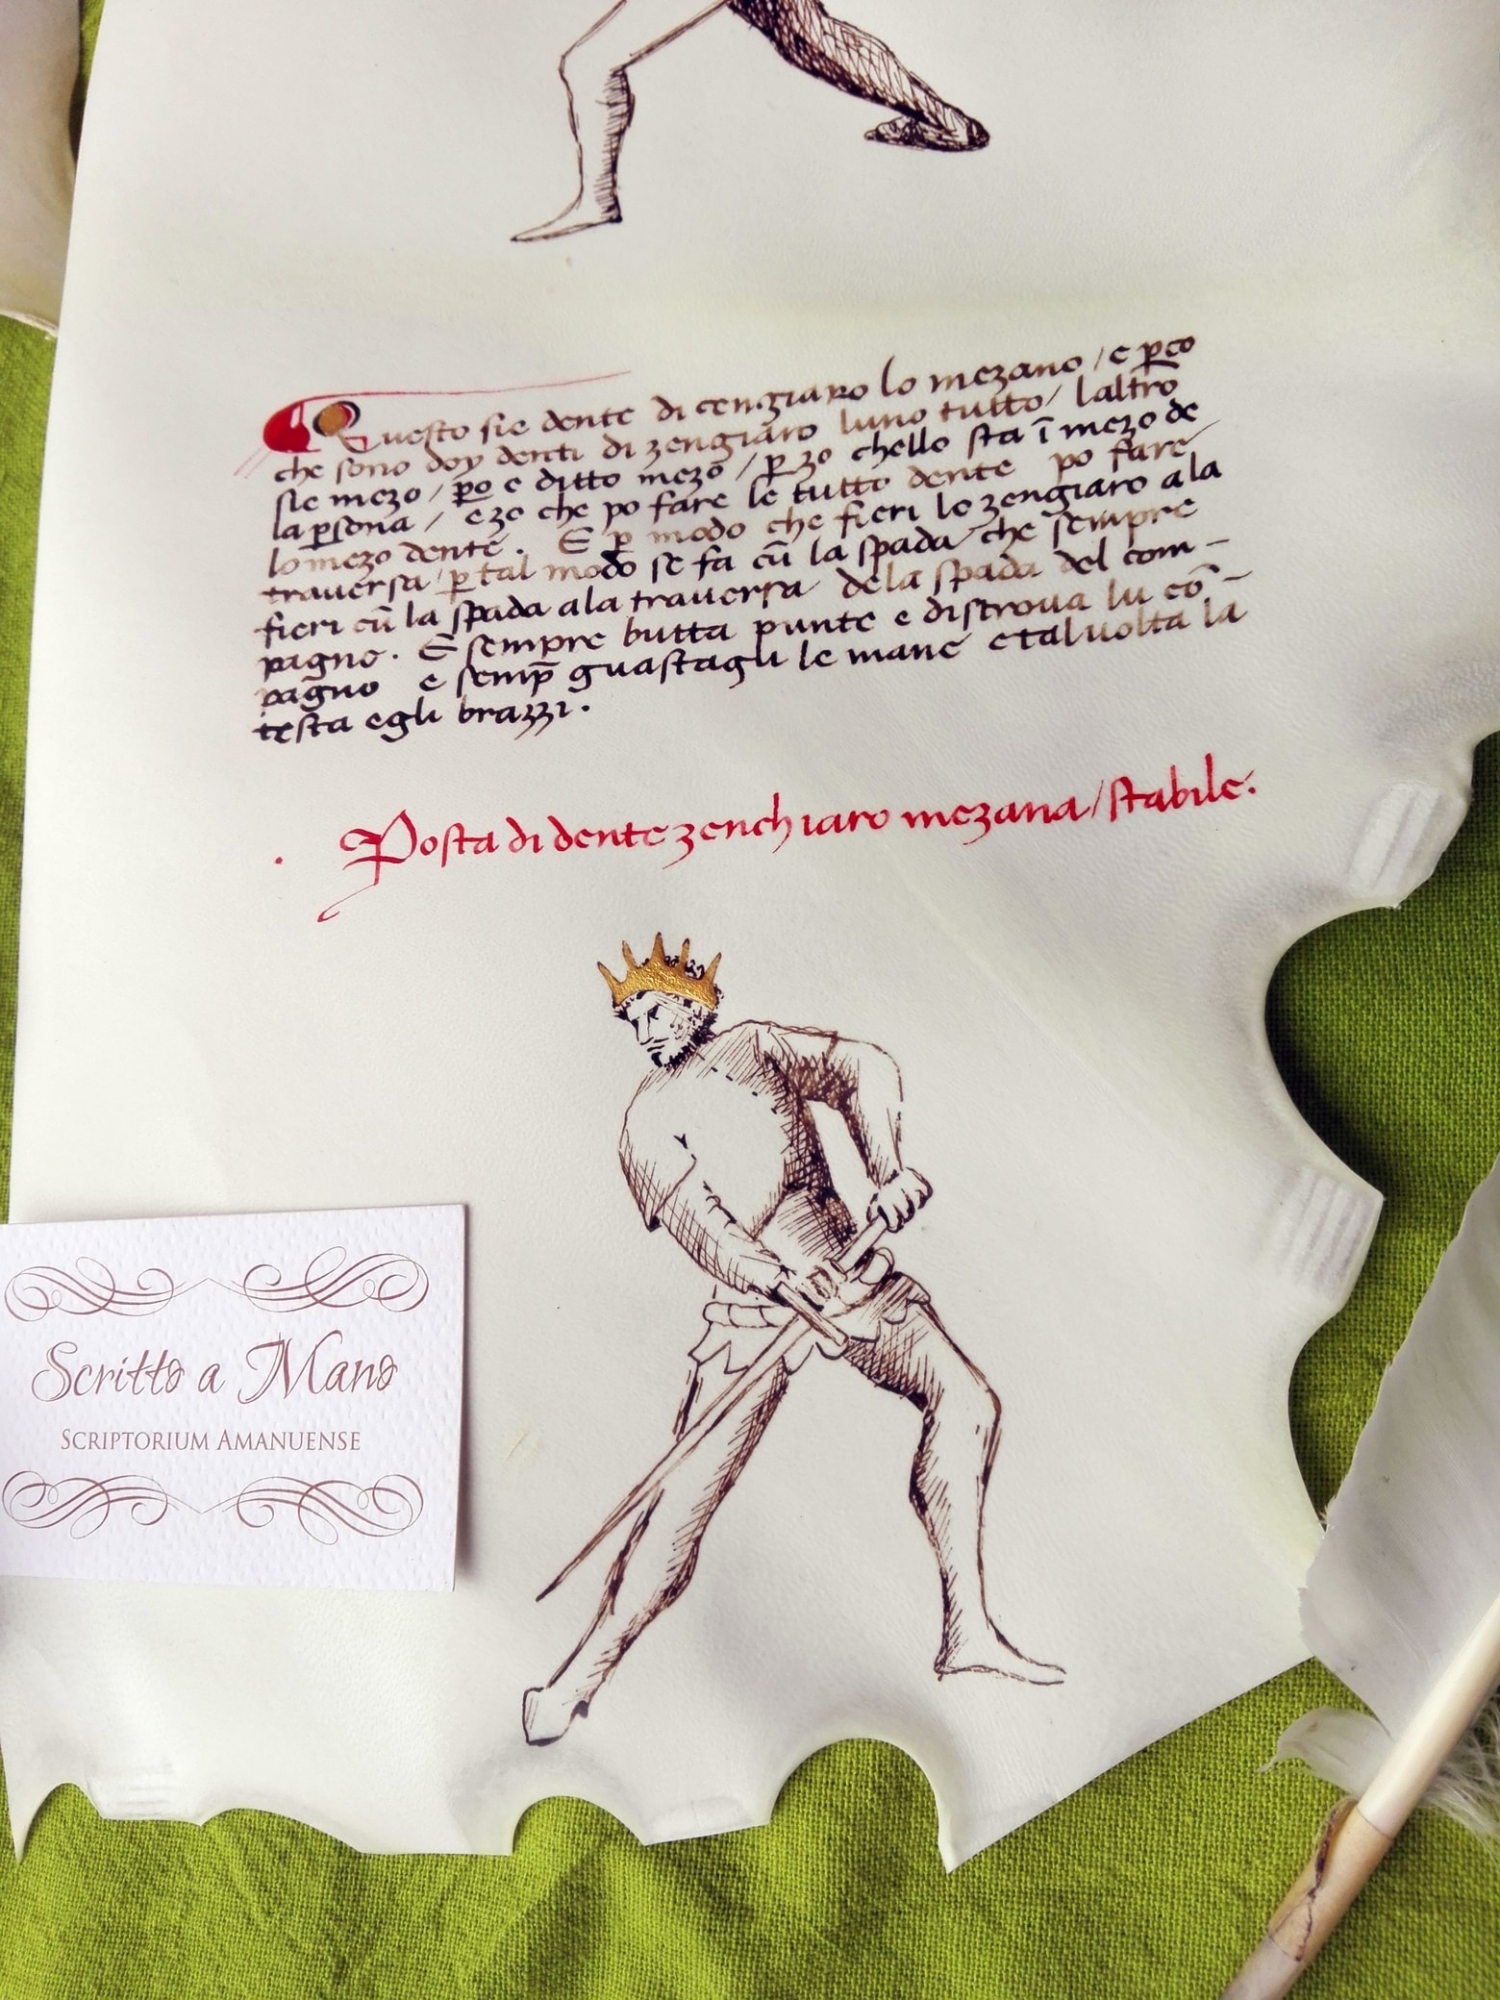 Questo sie dente di cengiaro lo mezano / e ꝑco
che sono doy denti di zengiaro luno tutto / laltro
sie mezo / ꝑo e ditto mezo / ꝑ zo chello sta ī mezo de
la ꝑsona / ezo che po fare le tutto dente po fare
lo mezo dente. E ꝑ modo che fieri lo zengiaro a la
traversa / ꝑ tal modo se fa cū la spada che sempre
fieri cū la spada a la traversa dela spada del com-
pagno. E sempre butta punte e discrova lu cō-
pagno e semp̄ guastagli le mane e talvolta la
testa egli brazzi.
. Posta di dente zenchiaro mezana / stabile.
Scritto a Mano
SCRIPTORIUM AMANUENSE